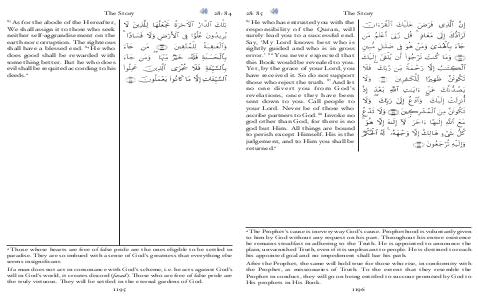 The Story 28: 84
⁸³ As for the abode of the Hereafter,
We shall assign it to those who seek
neither self-aggrandisement on the
earth nor corruption. The righteous
shall have a blessed end. ⁸⁴ He who
does good shall be rewarded with
something better. But he who does
evil shall be requited according to his
deeds.ᵃ
تِلْكَ الدَّارُ الْآخِرَةُ نَجْعَلُهَا لِلَّذِينَ لَا
يُرِيدُونَ عُلُوًّا فِي الْأَرْضِ وَلَا فَسَادًا
وَالْعَاقِبَةُ لِلْمُتَّقِينَ مَن جَاءَ
بِالْحَسَنَةِ فَلَهُ خَيْرٌ مِّنْهَا وَمَن جَاءَ
بِالسَّيِّئَةِ فَلَا يُجْزَى الَّذِينَ عَمِلُوا
السَّيِّئَاتِ إِلَّا مَا كَانُوا يَعْمَلُونَ
ᵃ Those whose hearts are free of false pride are the ones eligible to be settled in
paradise. They are so imbued with a sense of God's greatness that everything else
seems insignificant.
If a man does not act in consonance with God's scheme, i.e. he acts against God's
will in God's world, it creates discord (fasad). Those who are free of false pride are
the truly virtuous. They will be settled in the eternal gardens of God.
1195
28: 85 The Story
⁸⁵ He who has entrusted you with the
responsibility of the Quran, will
surely lead you to a successful end.
Say, 'My Lord knows best who is
rightly guided and who is in gross
error.' ⁸⁶ You never expected that
this Book would be revealed to you.
Yet, by the grace of your Lord, you
have received it. So do not support
those who reject the truth. ⁸⁷ And let
no one divert you from God's
revelations, once they have been
sent down to you. Call people to
your Lord. Never be of those who
ascribe partners to God. ⁸⁸ Invoke no
god other than God, for there is no
god but Him. All things are bound
to perish except Himself. His is the
judgement, and to Him you shall be
returned.ᵃ
إِنَّ الَّذِي فَرَضَ عَلَيْكَ الْقُرْءَانَ
لَرَادُّكَ إِلَى مَعَادٍ قُل رَّبِّي أَعْلَمُ مَن
جَاءَ بِالْهُدَى وَمَنْ هُوَ فِي ضَلَالٍ مُّبِينٍ
وَمَا كُنتَ تَرْجُوا أَن يُلْقَى إِلَيْكَ
الْكِتَابُ إِلَّا رَحْمَةً مِّن رَّبِّكَ فَلَا
تَكُونَنَّ ظَهِيرًا لِّلْكَافِرِينَ وَلَا
يَصُدُّنَّكَ عَنْ ءَايَاتِ اللَّهِ بَعْدَ إِذْ
أُنزِلَتْ إِلَيْكَ وَادْعُ إِلَى رَبِّكَ وَلَا
تَكُونَنَّ مِنَ الْمُشْرِكِينَ وَلَا تَدْعُ
مَعَ اللَّهِ إِلَهًا ءَاخَرَ لَا إِلَهَ إِلَّا هُوَ
كُلُّ شَيْءٍ هَالِكٌ إِلَّا وَجْهَهُ لَهُ الْحُكْمُ
وَإِلَيْهِ تُرْجَعُونَ
ᵃ The Prophet's cause is in every way God's cause. Prophethood is voluntarily given
to him by God without any request on his part. Throughout his entire existence
he remains steadfast in adhering to the Truth. He is appointed to announce the
plain, unvarnished Truth, even if it is unpleasant to people. He is destined to reach
his appointed goal and no impediment shall bar his path.
After the Prophet, the same will hold true for those who rise, in conformity with
the Prophet, as missionaries of Truth. To the extent that they resemble the
Prophet in conduct, they will go on being entitled to succour promised by God to
His prophets in His Book.
1196